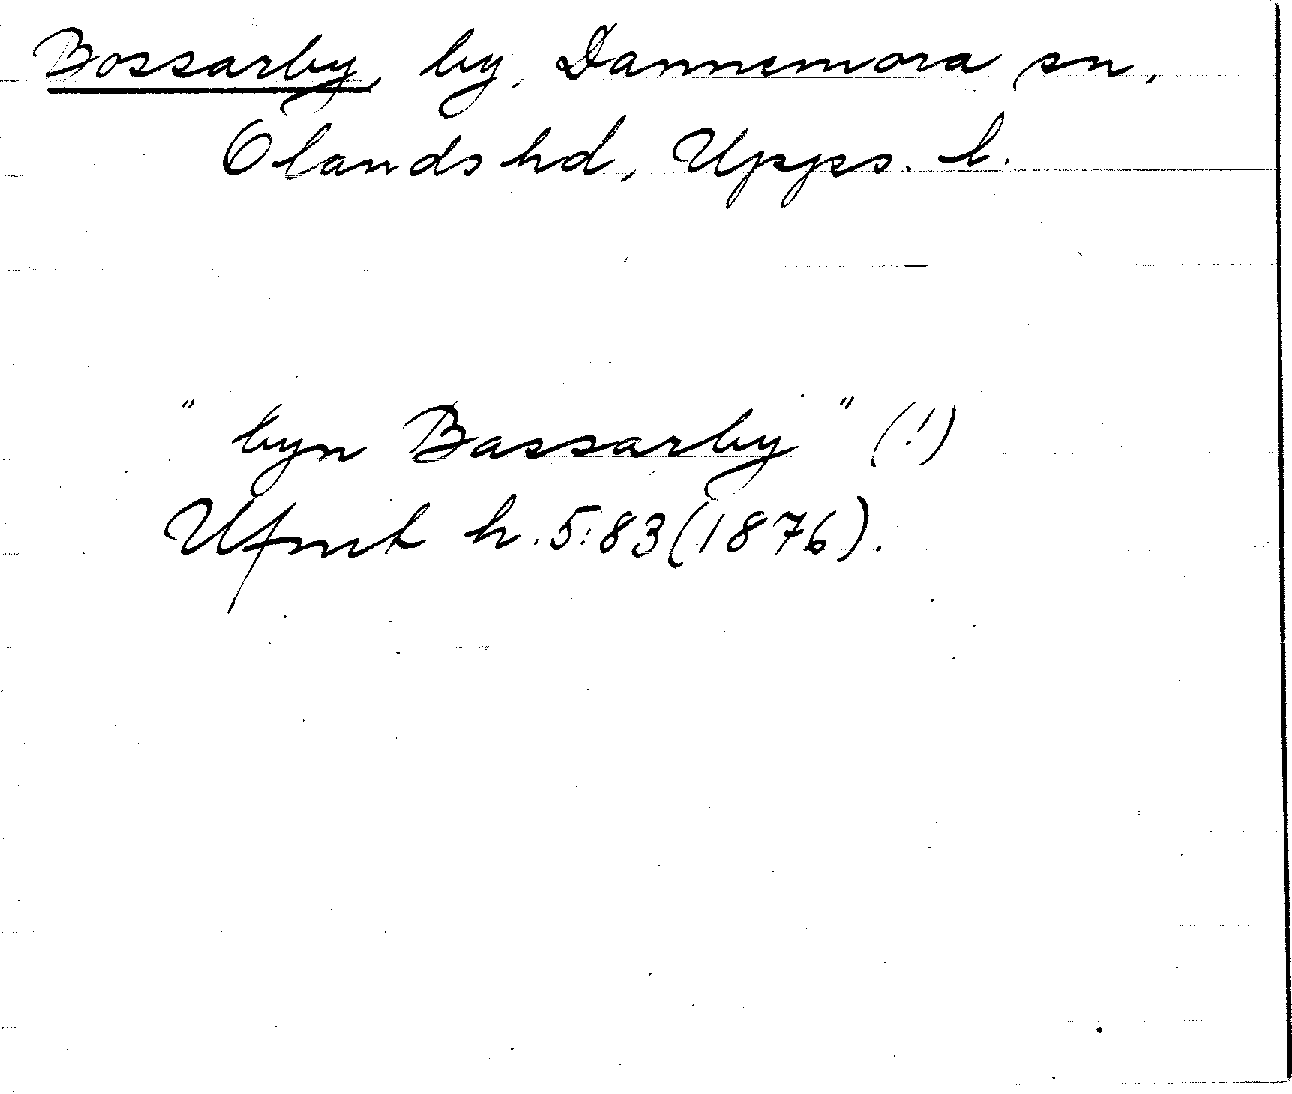 Bossarby, by, Dannemora sn,
Olands hd, Upps. l.
"byn Bassarby" (!)
Ufmt h. 5:83 (1876).